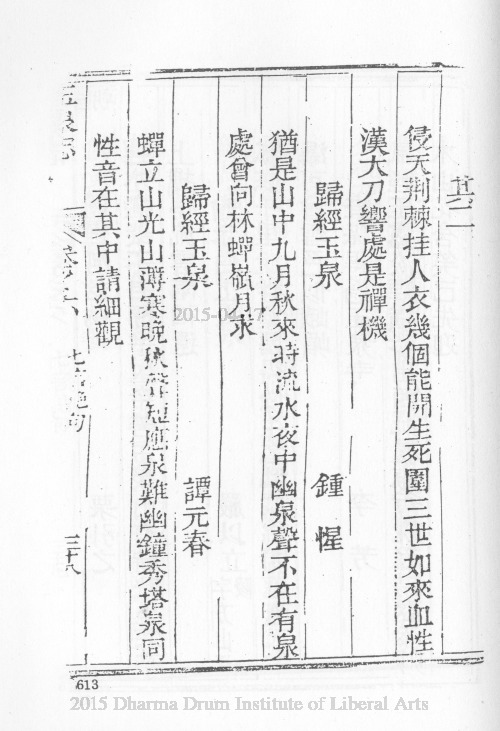 其二
侵天荆棘挂人衣幾個能開生死圍三世如來血性
漢大刀響處是禪機
歸經玉泉 鍾惺
猶是山中九月秋來時流水夜中幽泉聲不在有泉
處會向林蟬嶺月求
歸經玉泉 譚元春
蟬立山光山薄寒晚 聲短應泉難幽鐘秀塔泉同
性音在其中請細觀
玉泉志 七言絶句 三十八
2015-04-17
613
2015 Dharma Drum Institute of Liberal Arts